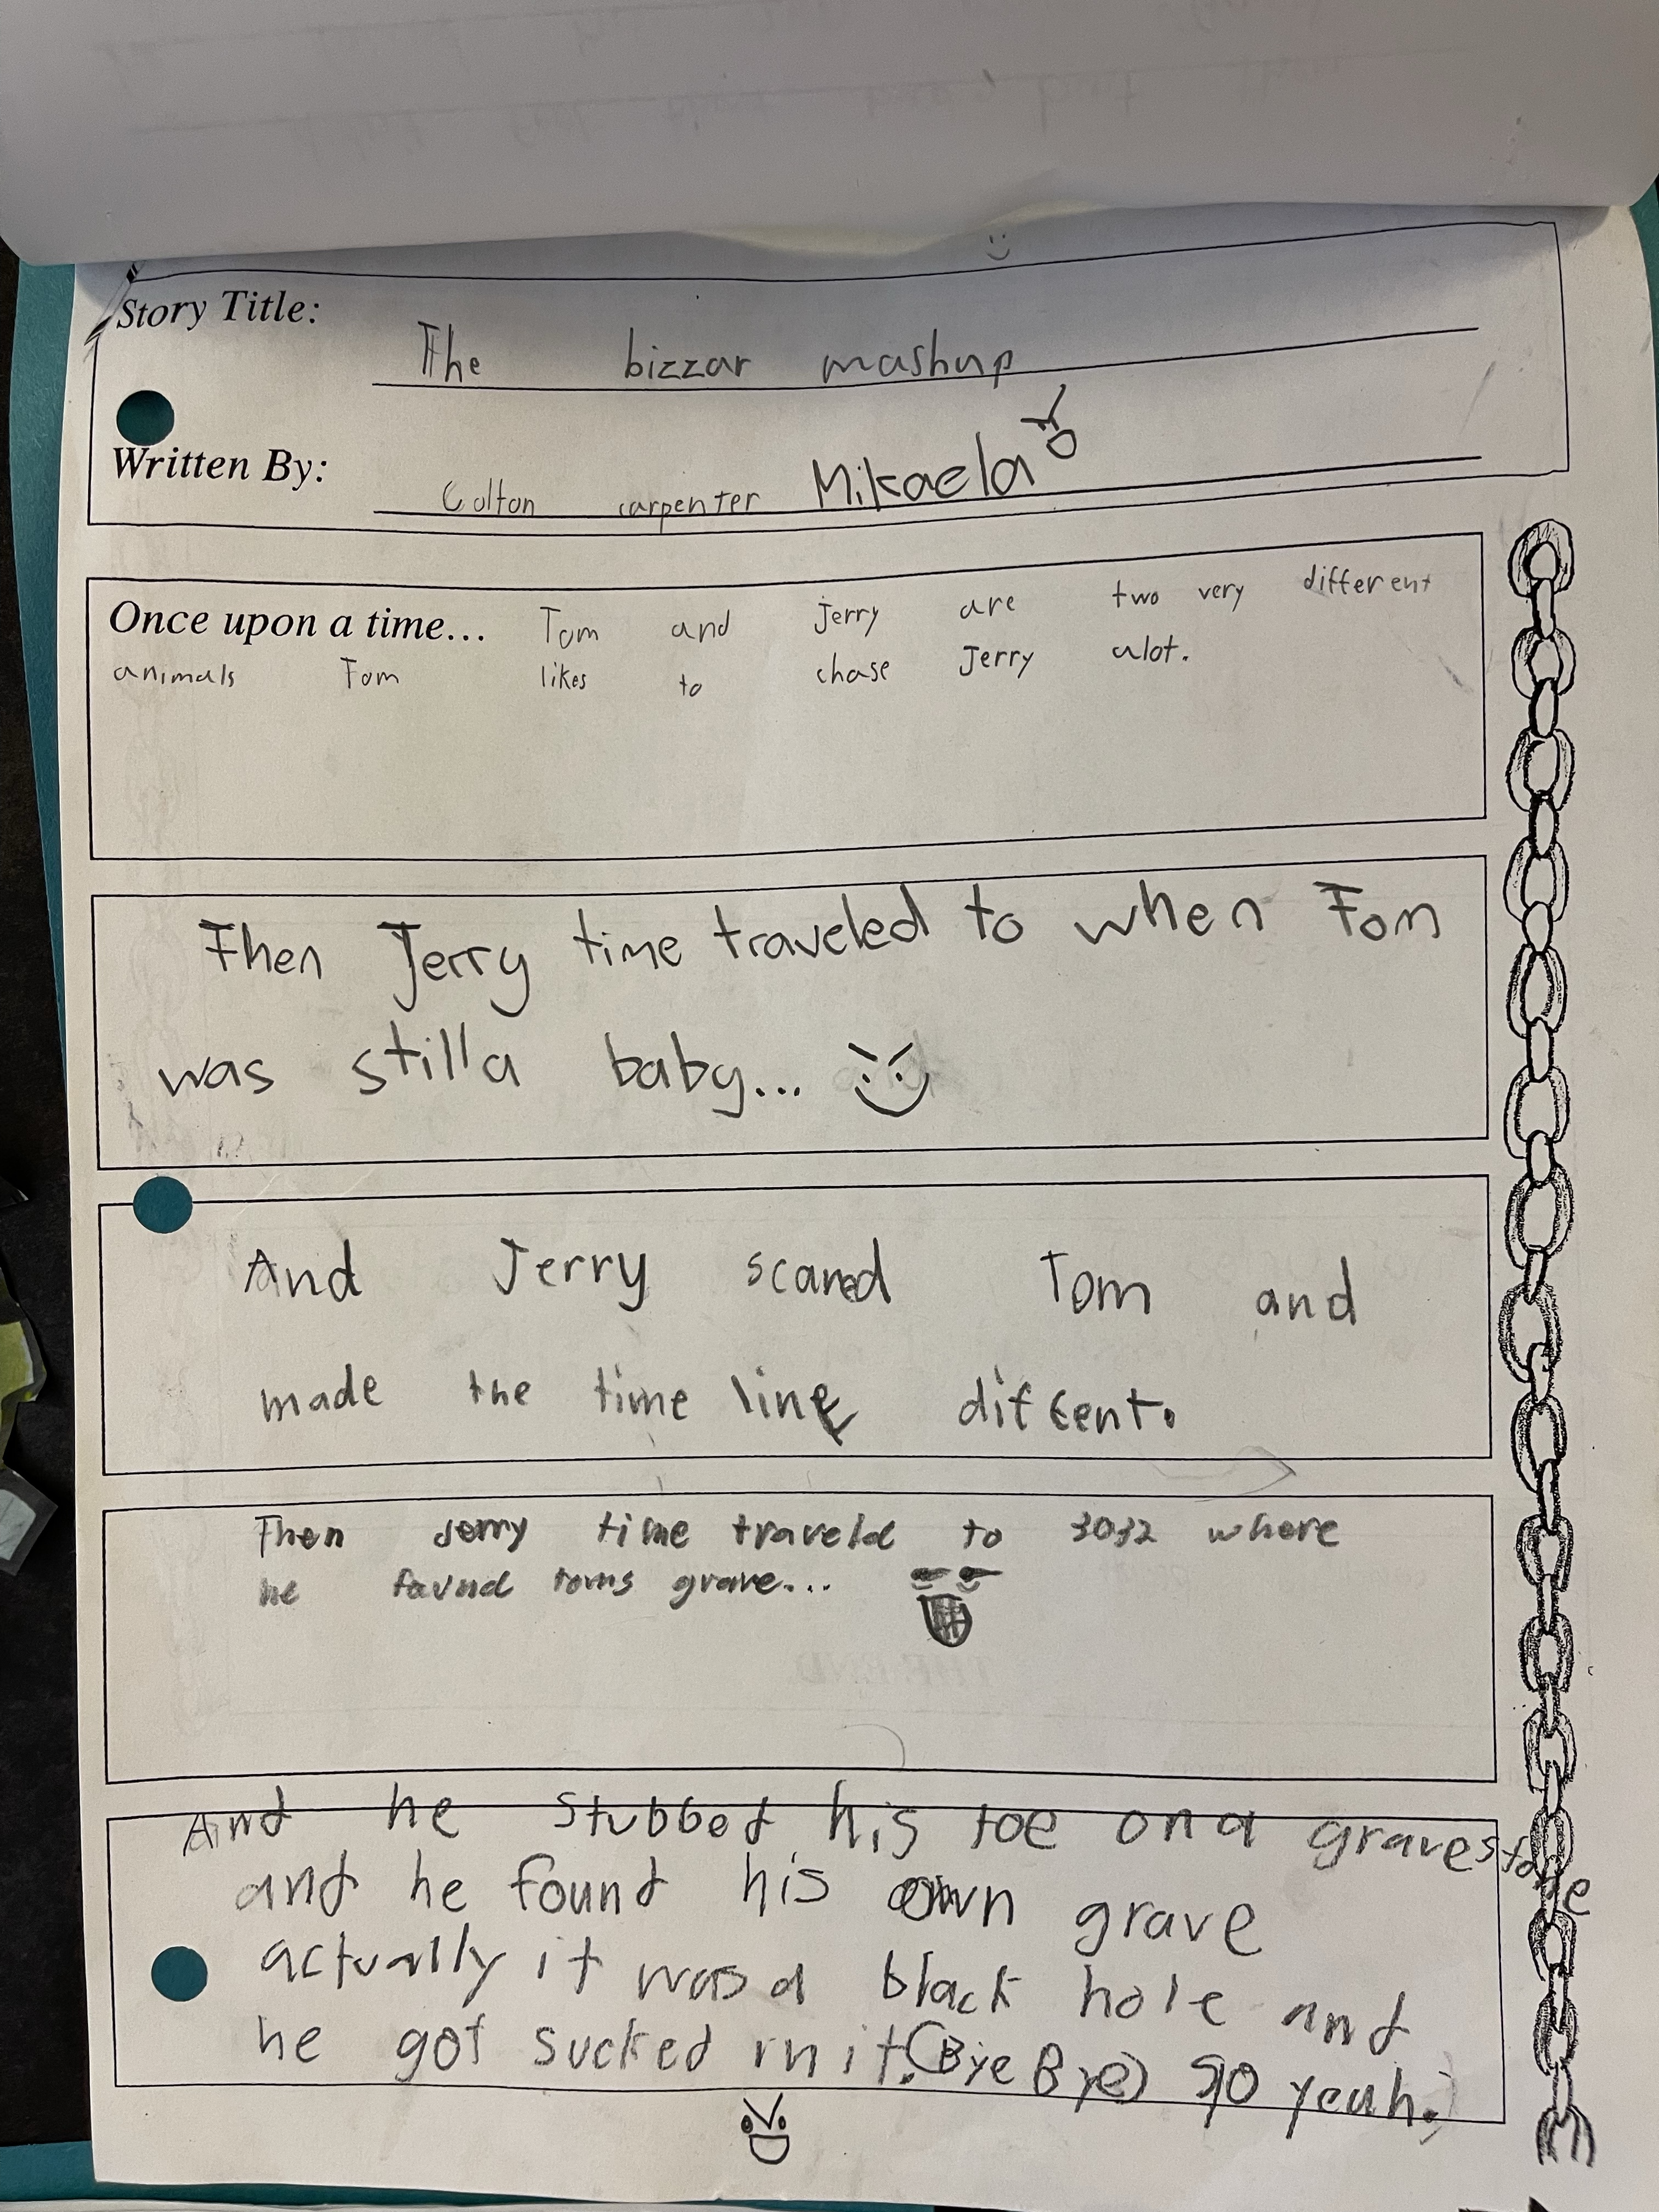 Story Title:
The bizzar mashup
Written By:
Colton carpenter Mikaela
Once upon a time... Tom and Jerry are two very different
animals Tom likes to chase Jerry alot.
Then Jerry time traveled to when Tom
was still a baby...
And Jerry scared Tom and
made the time line diffent.
Then Jerry time traveld to 3032 where
he favnd toms grave...
And he stubbed his toe on a gravestone
and he found his own grave
actually it was a black hole and
he got sucked in it. (Bye Bye) so yeah.